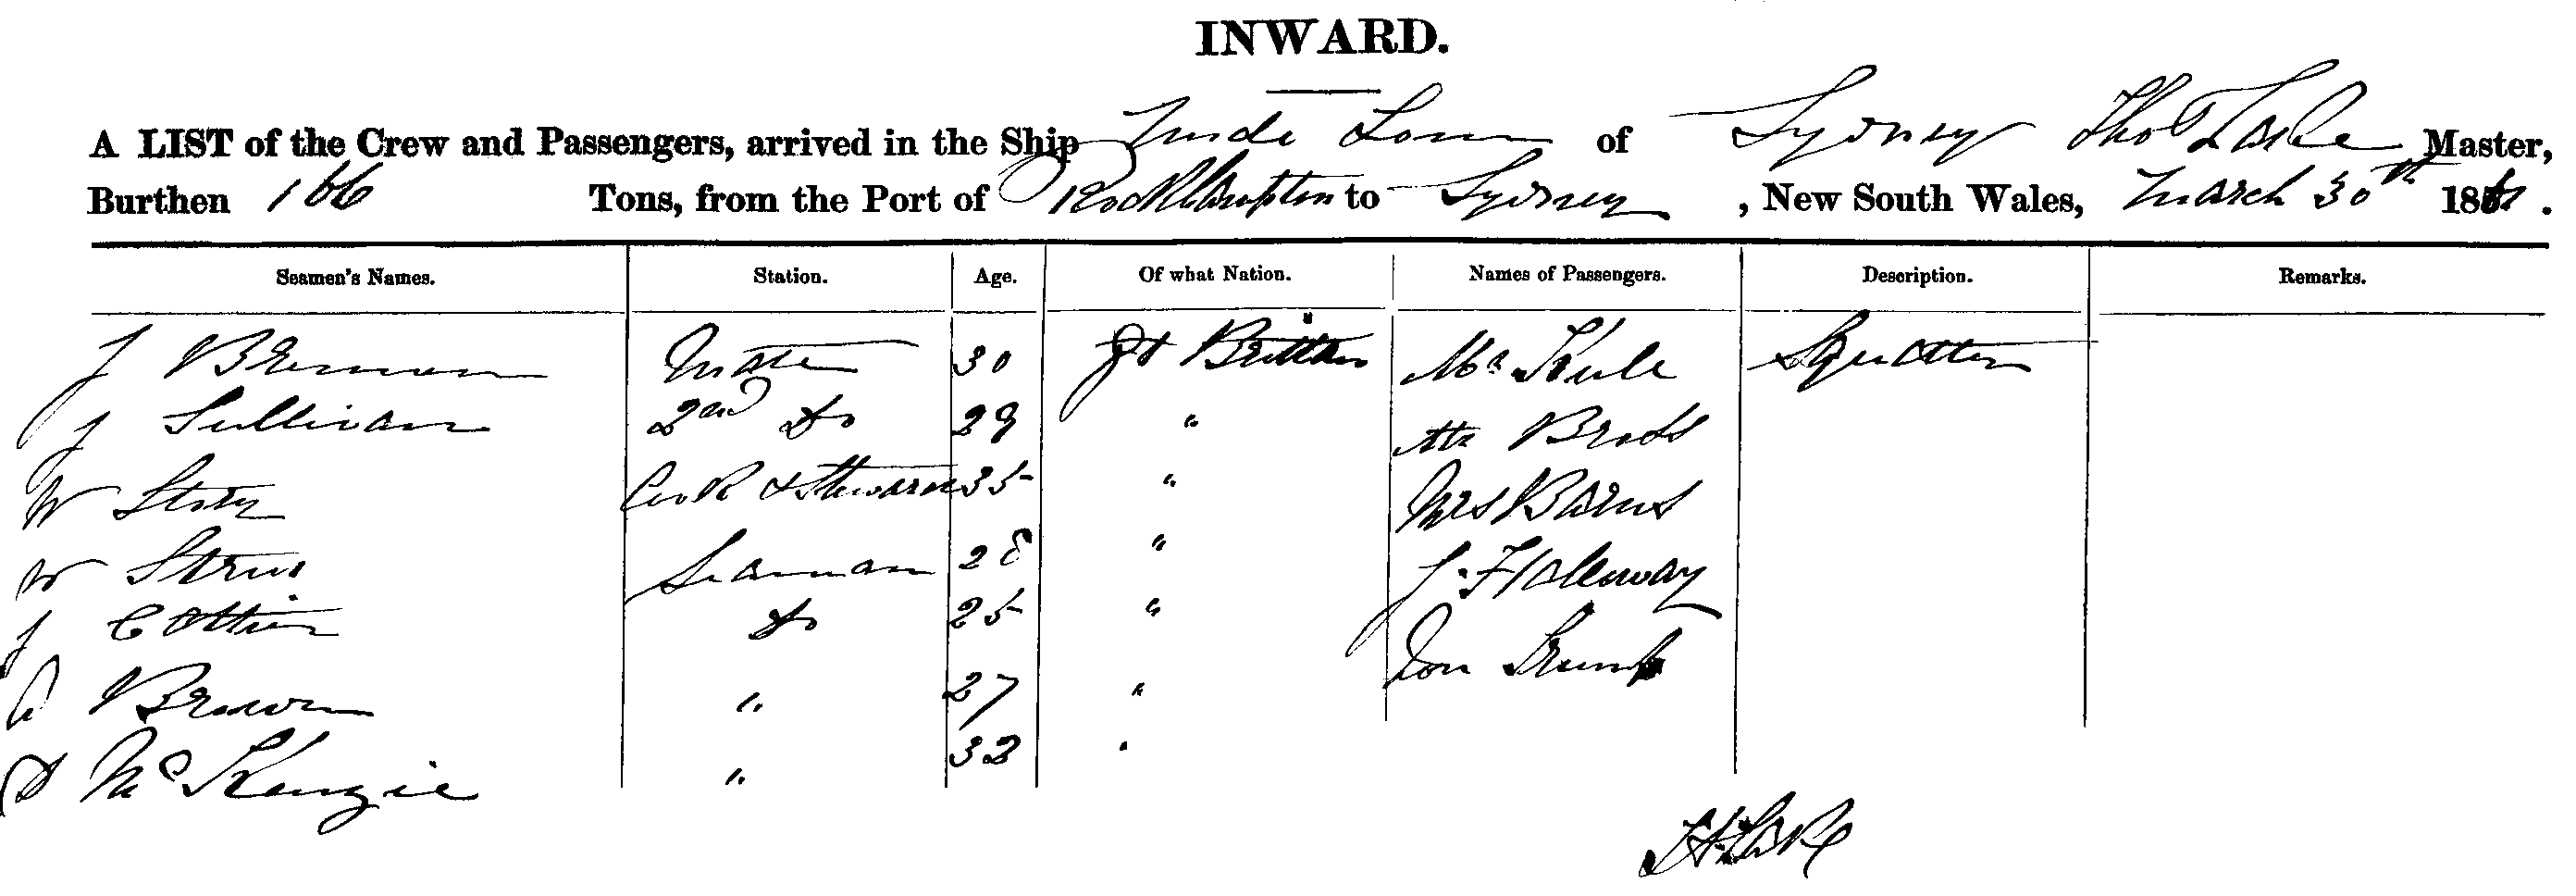 INWARD.
A LIST of the Crew and Passengers, arrived in the Ship Uncle Tom of Sydney Thos Lake Master,
Burthen 166 Tons, from the Port of Rockhampton to Sydney, New South Wales, March 30th 1861.
Seamen's Names. Station. Age. Of what Nation. Names of Passengers. Description. Remarks.
J Brennan Mate 30 Gt Brittan Mr Squatter
J Sullivan 2nd Do 29 " Mr
W Cook & Steward 35 " Mrs Barns
W Seaman 28 " J. Holloway
J Cottier Do 25 "
Brown " 27 "
D McKenzie " 32 "
T H Lake